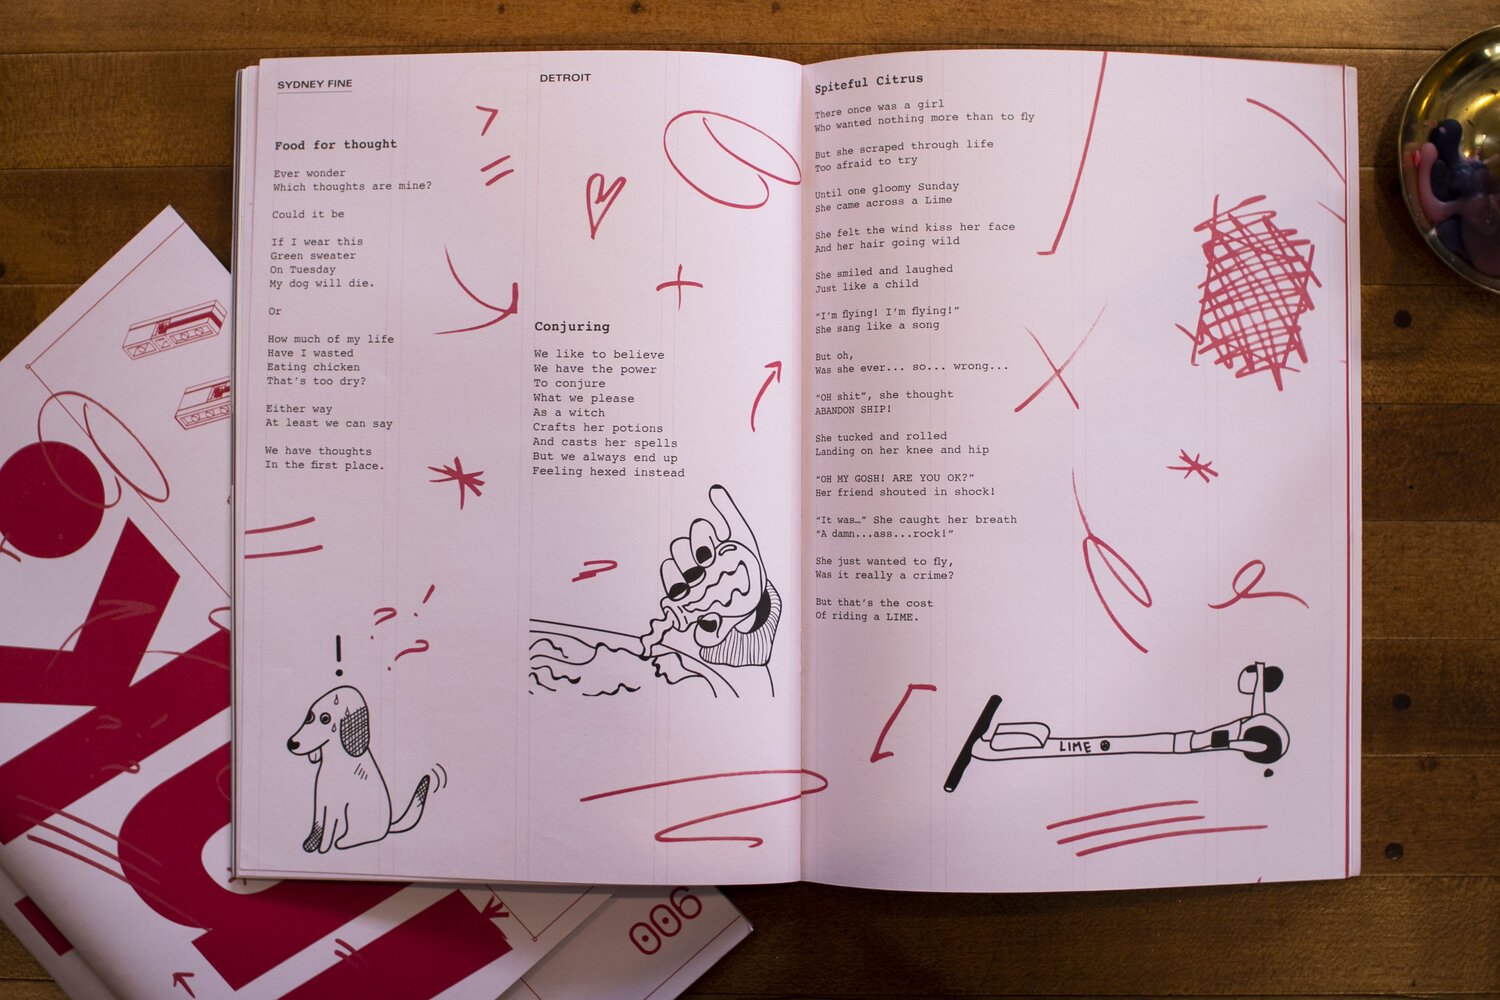 SYDNEY FINE
DETROIT
Food for thought
Ever wonder
Which thoughts are mine?
Could it be
If I wear this
Green sweater
On Tuesday
My dog will die.
Or
How much of my life
Have I wasted
Eating chicken
That's too dry?
Either way
At least we can say
We have thoughts
In the first place.
!
Conjuring
We like to believe
We have the power
To conjure
What we please
As a witch
Crafts her potions
And casts her spells
But we always end up
Feeling hexed instead
Spiteful Citrus
There once was a girl
Who wanted nothing more than to fly
But she scraped through life
Too afraid to try
Until one gloomy Sunday
She came across a Lime
She felt the wind kiss her face
And her hair going wild
She smiled and laughed
Just like a child
“I’m flying! I’m flying!”
She sang like a song
But oh,
Was she ever... so... wrong...
“OH shit”, she thought
ABANDON SHIP!
She tucked and rolled
Landing on her knee and hip
“OH MY GOSH! ARE YOU OK?”
Her friend shouted in shock!
“It was…” She caught her breath
“A damn...ass...rock!”
She just wanted to fly,
Was it really a crime?
But that’s the cost
Of riding a LIME.
LIME
006